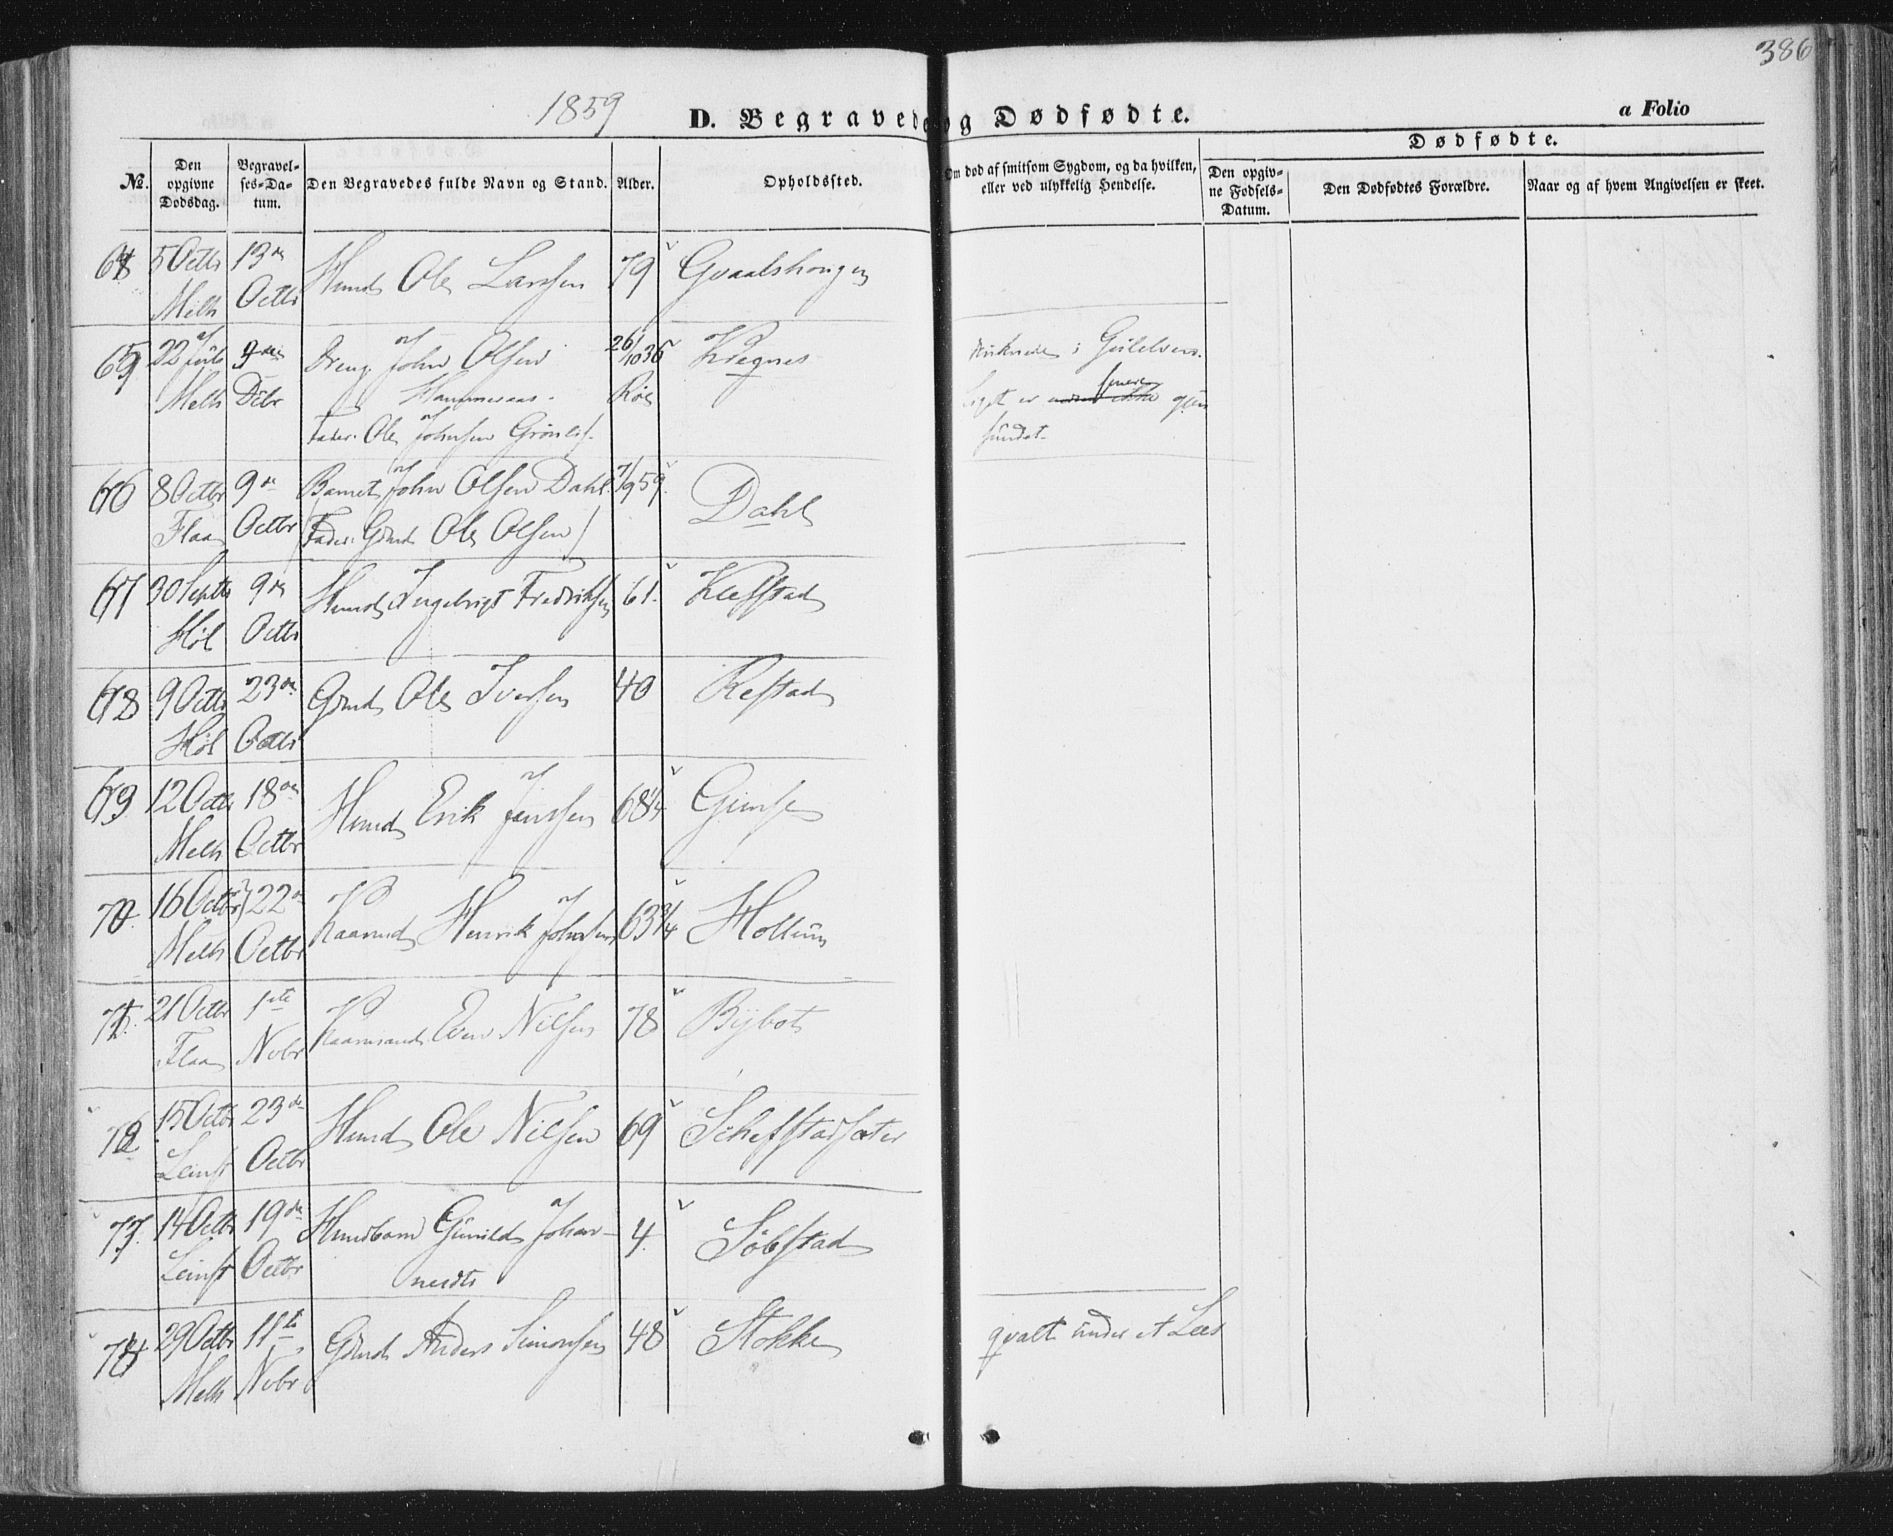 386
1859
D. Begravede og Dødfødte.
a Folio
Dødfødte.
No.
Den opgivne Dødsdag.
Begravelses-Datum.
Den Begravedes fulde Navn og Stand.
Alder.
Opholdssted.
Om død af smitsom Sygdom, og da hvilken, eller ved ulykkelig Hendelse.
Den opgivne Fødsels-Datum.
Den Dødfødtes Forældre.
Naar og af hvem Angivelsen er skeet.
64 5 Octbr 13de Huusmd Ole Larssen 79
Melh Octbr
65 22 Juli 9de Dreng John Olsen 26/10 36 Kregnes druknede i Gulelven.
Melh Octbr Hammeraas. Røe Liget er senere gjen
Fader Ole Johnsen Grønli fundet.
66 8 Octbr 9de Barnet John Olsen Dahl 7/9 59 Dahl
Flaa Octbr (Fader: Gmd Ole Olsen)
67 30 Septb 9de Huusmd Ingebrigt Fredriksen 61. Kleffstad
Høl Octbr
68 9 Octbr 23de Gmd Ole Iversen 40 Refstad
Høl Octbr
69 12 Octbr 18de Huusmd Erik Jenssen 68 1/4 Gimse
Melh Octbr
70 16 Octbr 22de Kaarmd Henrik Johnsen 63 3/4 Hollum
Melh Octbr
71. 21 Octbr 1ste Kaarmand Even Nilsen 78 Bybot
Flaa Novbr
72 15 Octbr 23de Huusmd Ole Nilsen 69
Leinst Octbr
73. 14 Octbr 19de Huusbarn Gunild Johan- 4. Søbstad
Leinst Octbr nesdtr
74 29 Octbr 11te Gmd Anders Simonsen 48 Stokke qvalt under et Læs
Melh Novbr